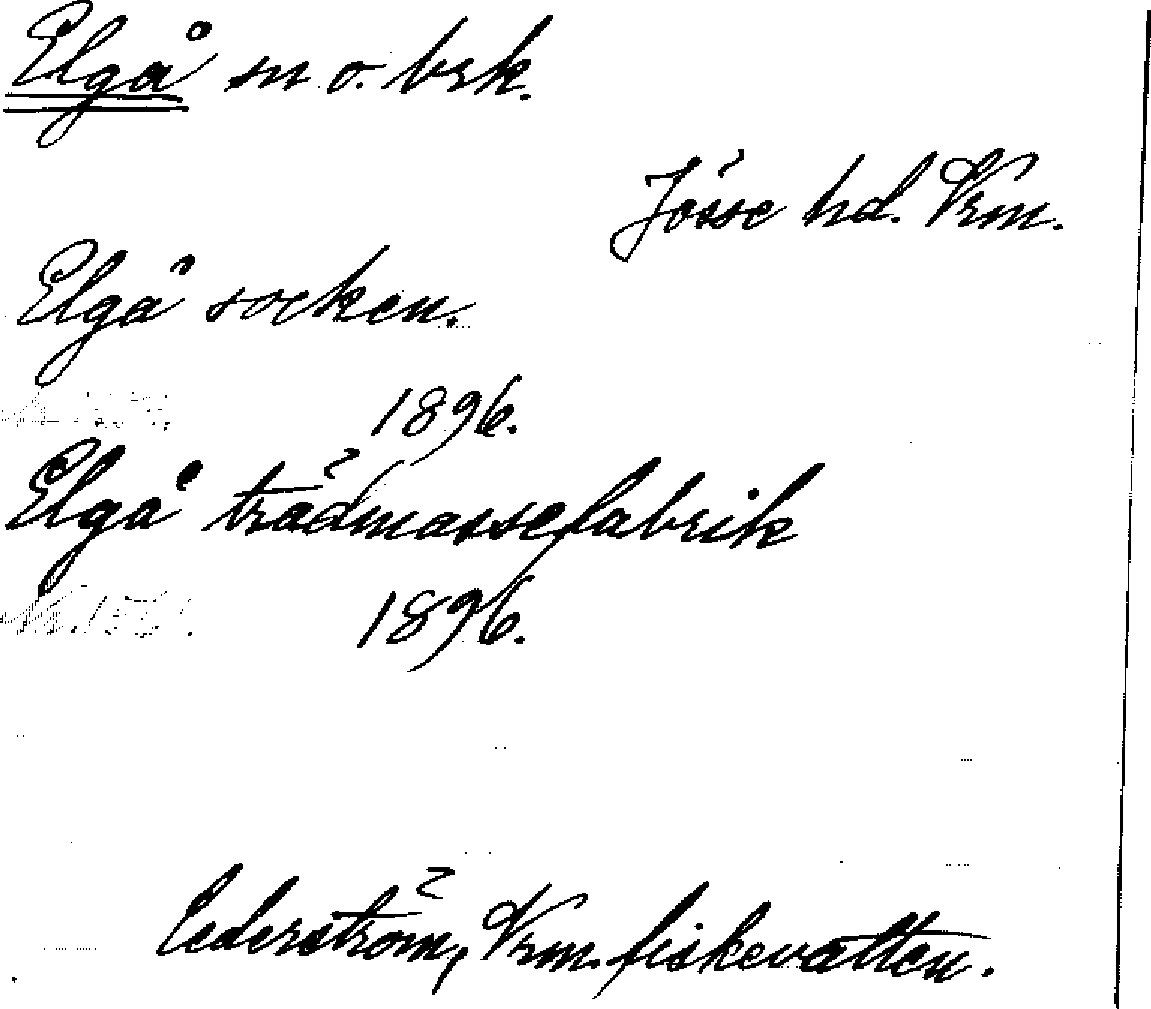 Elgå sn o. brk.
Jösse hd. Vrm.
Elgå socken.
1896.
Elgå trädmassefabrik
1896.
Cederström, Vrm. fiskevatten.